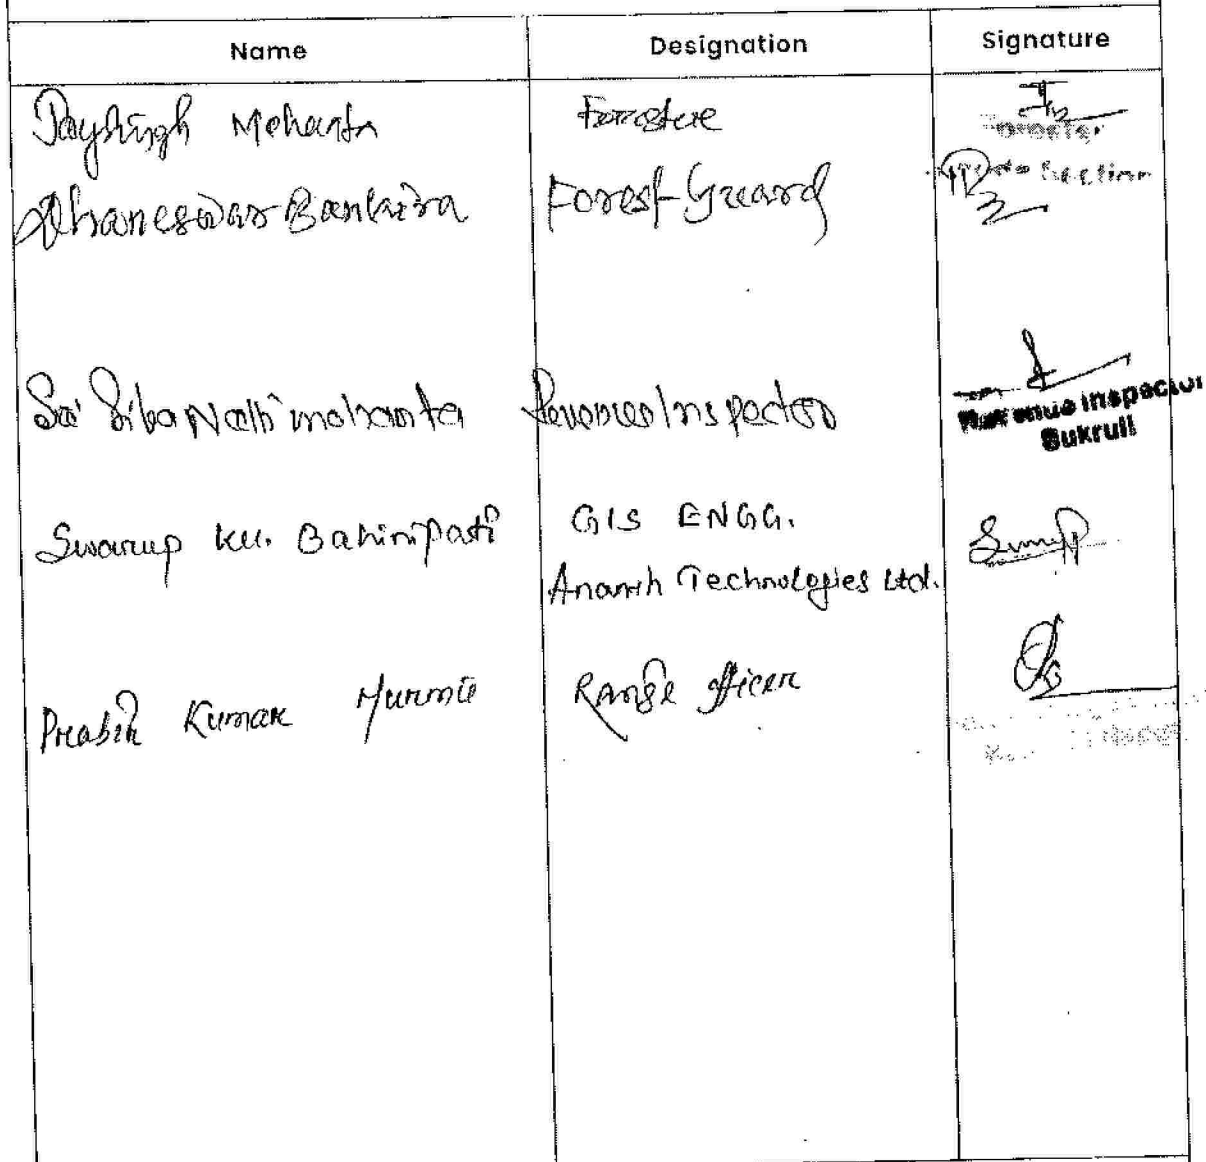 Name Designation Signature
Jaysingh Mohanta Forester
Forester
Section
Dhaneswar Bankira Forest Guard
Sri Siba Nath mohanta Revenue Inspector
Revenue Inspector
Sukruli
Swarup ku. Bahinipati GIS ENGG.
Ananth Technologies Ltd.
Prabir Kumar Murmu Range officer